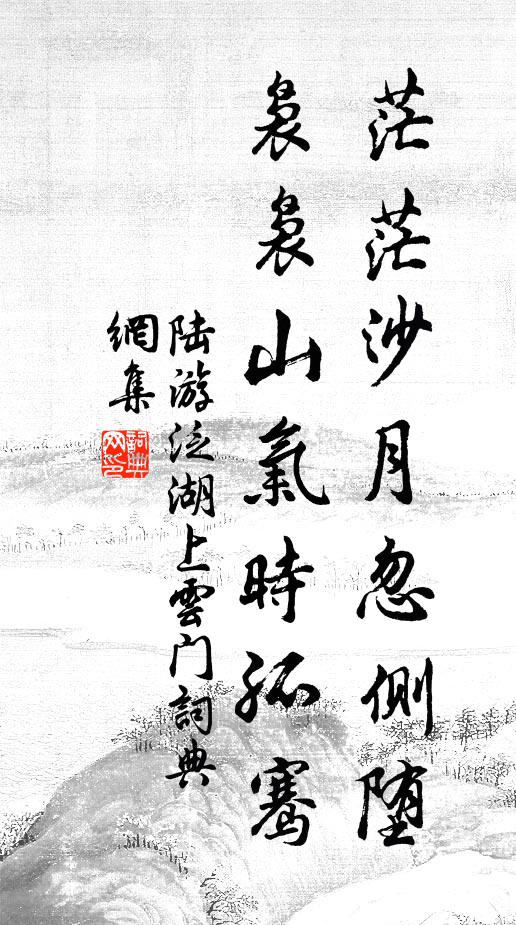 茫茫沙月忽側堕
裊裊山氣時孤騫
陆游泛湖上雲门詞典
網集
詞典网印